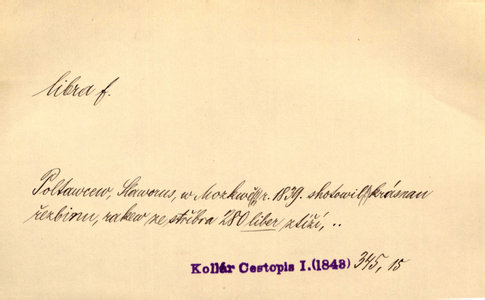 libra f.
Poltawcew, Slaworus, w Mozkwě r. 1839. shotowil krásnau
řezbinu, rakew ze stříbra 280 liber ztíží, ..
Kollár Cestopis I.(1843) 345, 15